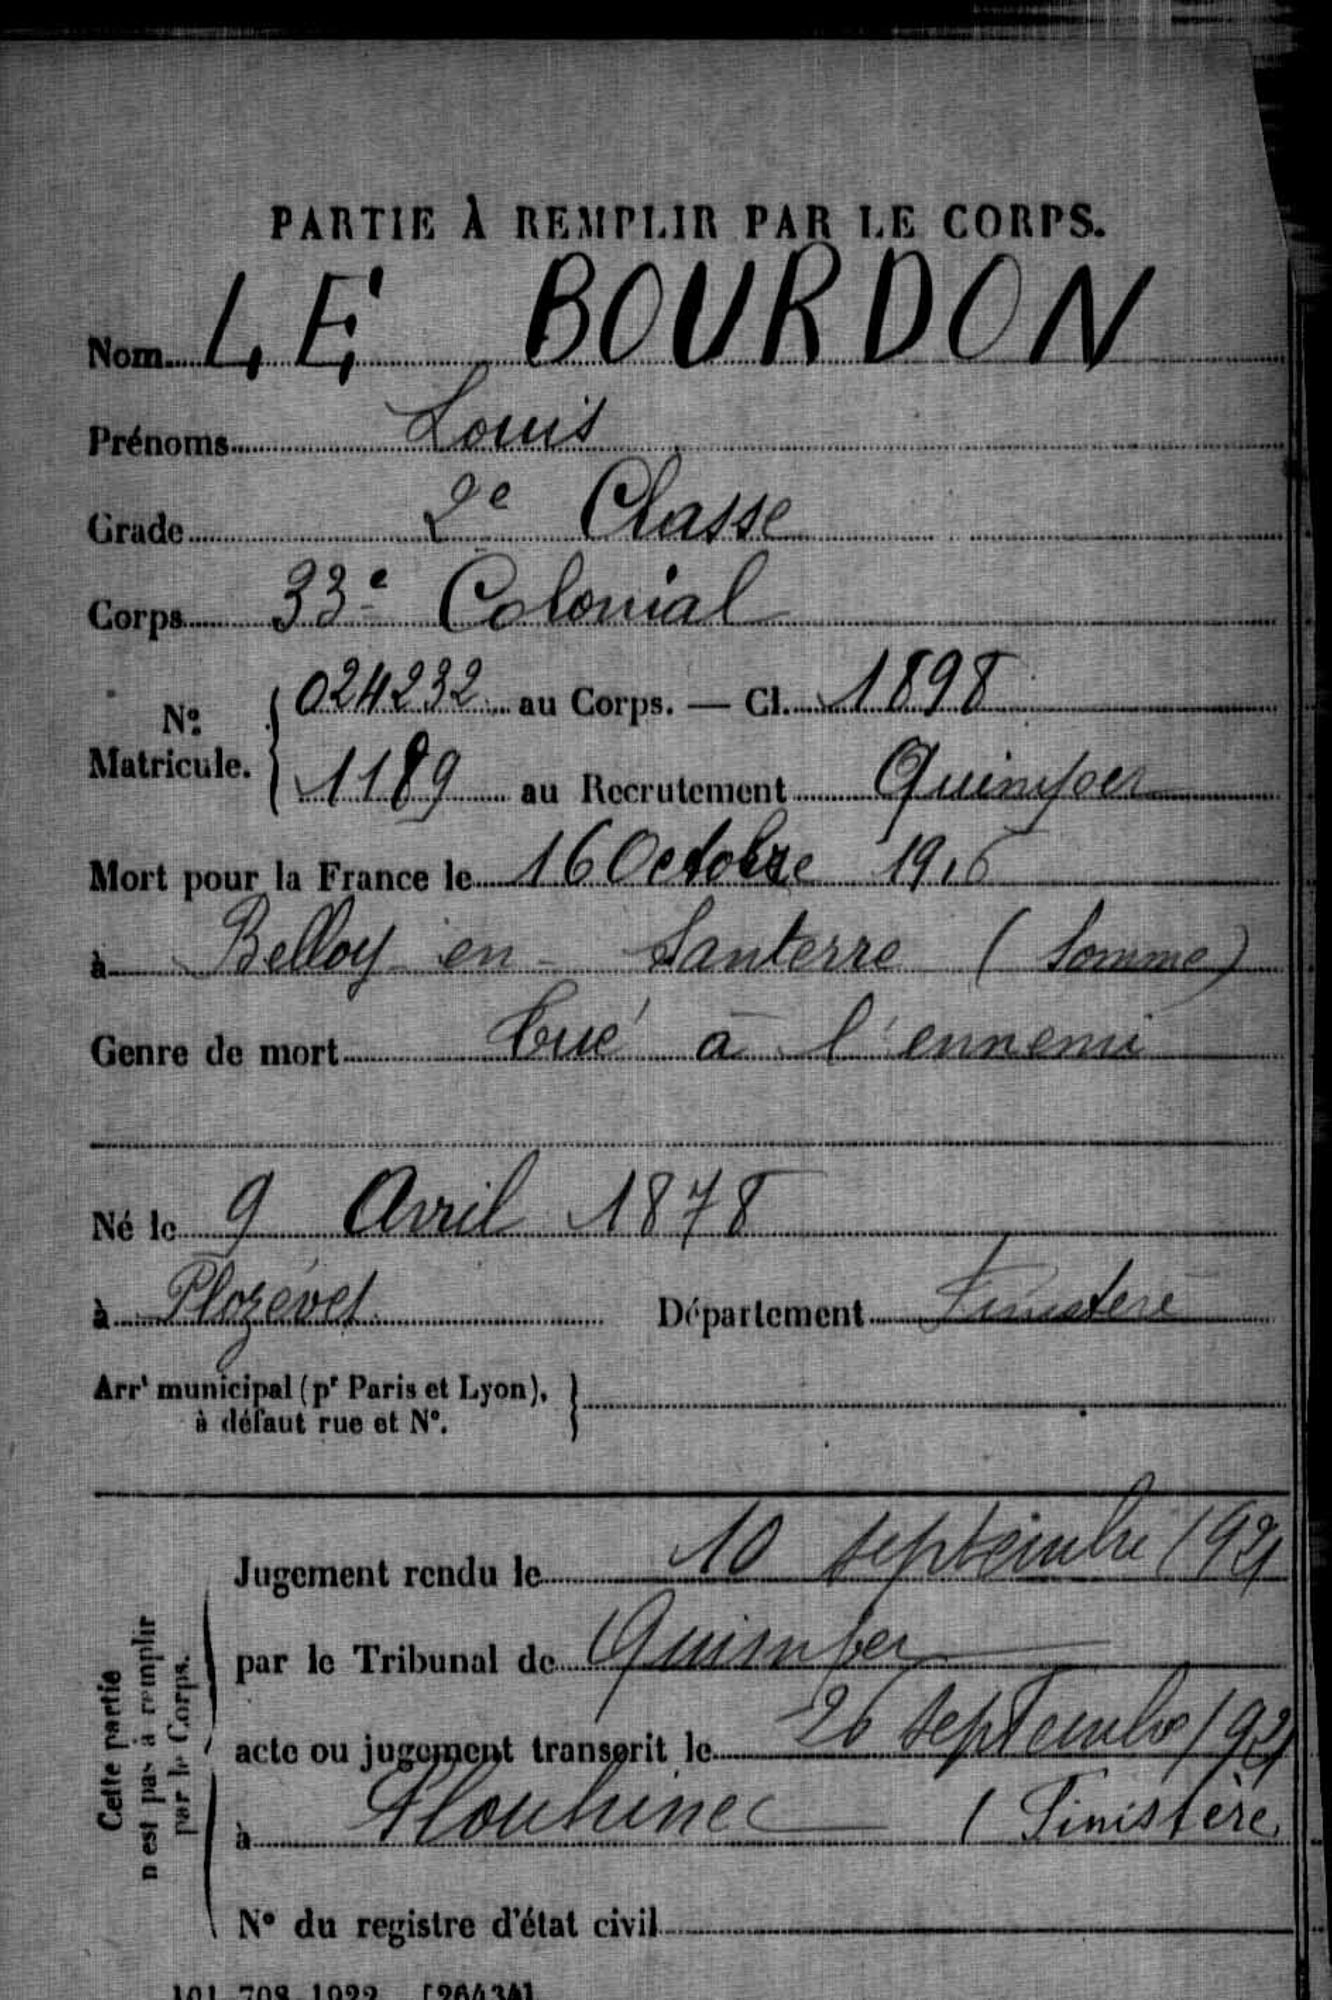 PARTIE À REMPLIR PAR LE CORPS.
Nom LE BOURDON
Prénoms Louis
Grade 2e Classe
Corps 33e Colonial
No Matricule. { 024232 au Corps. — Cl. 1898
1189 au Recrutement Quimper
Mort pour la France le 16 Octobre 1916
à Belloy en Santerre (Somme)
Genre de mort tué à l'ennemi
Né le 9 Avril 1878
à Plozévet Département Finistère
Arrt municipal (pr Paris et Lyon), }
à défaut rue et No.
Cette partie
n'est pas à remplir
par le Corps.
Jugement rendu le 10 septembre 1921
par le Tribunal de Quimper
acte ou jugement transcrit le 26 septembre 1921
à Plouhinec (Finistère
No du registre d'état civil
101 708 1922 [26434]